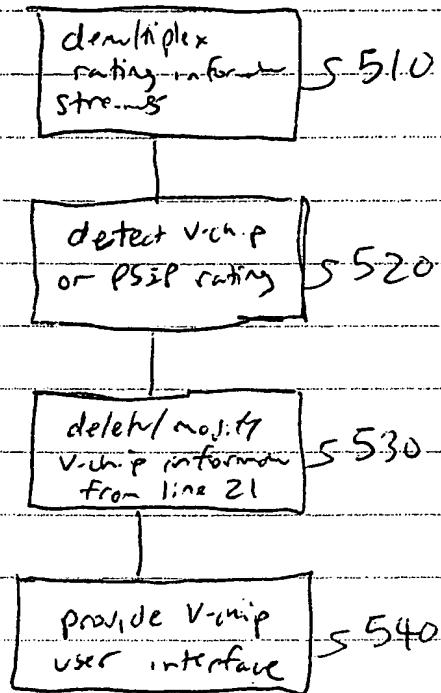 demultiplex
rating inform
streams
S 510
detect v-chip
or PSIP rating
S 520
delete/modify
V-chip inform
from line 21
S 530
provide V-chip
user interface
S 540